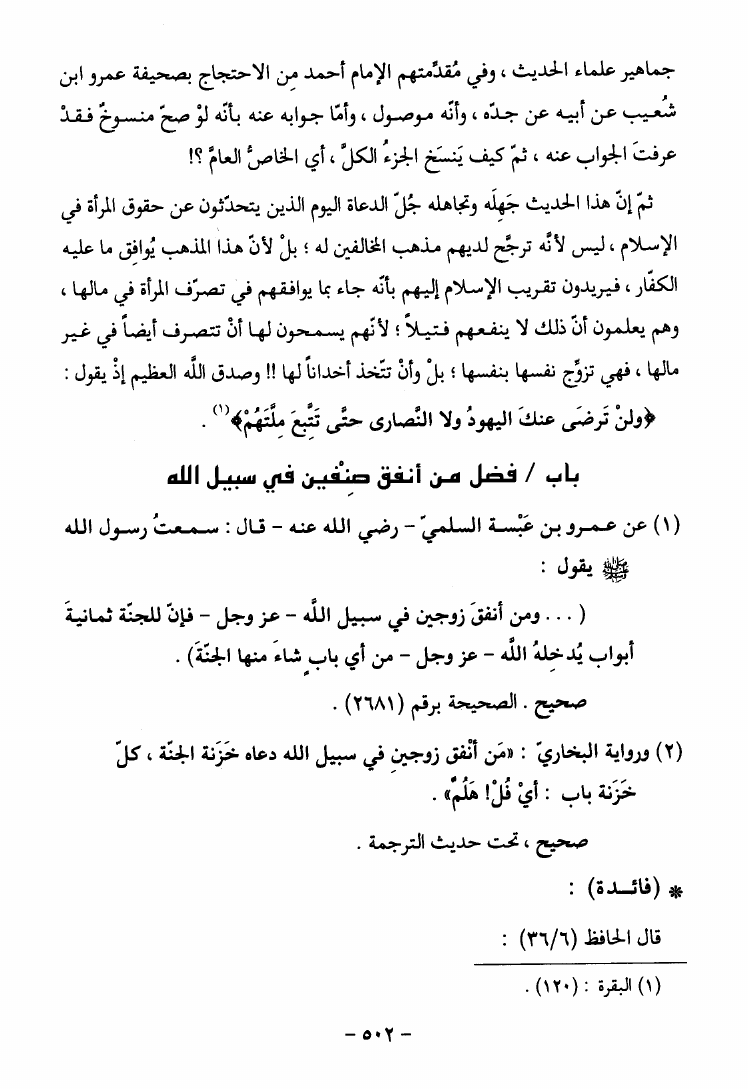 جماهير علماء الحديث ، وفي مُقدِّمتهم الإمام أحمد مِن الاحتجاج بصحيفة عمرو ابن
شُعيب عن أبيه عن جدّه ، وأنّه موصول ، وأمّا جوابه عنه بأنّه لوْ صحّ منسوخٌ فقدْ
عرفتَ الجواب عنه ، ثمّ كيف يَنسَخ الجزءُ الكلَّ ، أي الخاصُّ العامَّ ؟!
ثمّ إنّ هذا الحديث جَهِلَه وتجاهله جُلّ الدعاة اليوم الذين يتحدّثون عن حقوق المرأة في
الإسلام ، ليس لأنَّه ترجَّح لديهم مذهب المخالفين له ؛ بلْ لأنّ هذا المذهب يُوافِق ما عليه
الكفّار ، فيريدون تقريب الإسلام إليهم بأنّه جاء بما يوافقهم في تصرّف المرأة في مالها ،
وهم يعلمون أنّ ذلك لا ينفعهم فتيلاً ؛ لأنّهم يسمحون لها أنْ تتصرف أيضاً في غير
مالها ، فهي تزوِّج نفسها بنفسها ؛ بلْ وأنْ تتّخذ أخداناً لها !! وصدق اللَّه العظيم إذْ يقول :
﴿ولنْ تَرضَى عنكَ اليهودُ ولا النَّصارى حتَّى تَتَّبعَ مِلَّتَهُمْ﴾(١) .
باب / فضل من أنفق صِنْفين في سبيل الله
(١) عن عمرو بن عَبْسة السلميّ – رضي الله عنه – قال : سمعتُ رسول الله
ﷺ يقول :
( ... ومن أنفقَ زوجين في سبيل اللَّه – عز وجل – فإنّ للجنّة ثمانيةَ
أبواب يُدخِلهُ اللَّه – عز وجل – من أي بابٍ شاءَ منها الجنّةَ) .
صحيح . الصحيحة برقم (٢٦٨١) .
(٢) ورواية البخاريّ : «مَن أنْفق زوجينِ في سبيل الله دعاه خَزَنة الجنّة ، كلّ
خَزَنة باب : أيْ فُلْ! هَلُمَّ» .
صحيح ، تحت حديث الترجمة .
* (فائدة) :
قال الحافظ (٣٦/٦) :
(١) البقرة : (١٢٠) .
– ٥٠٢ –